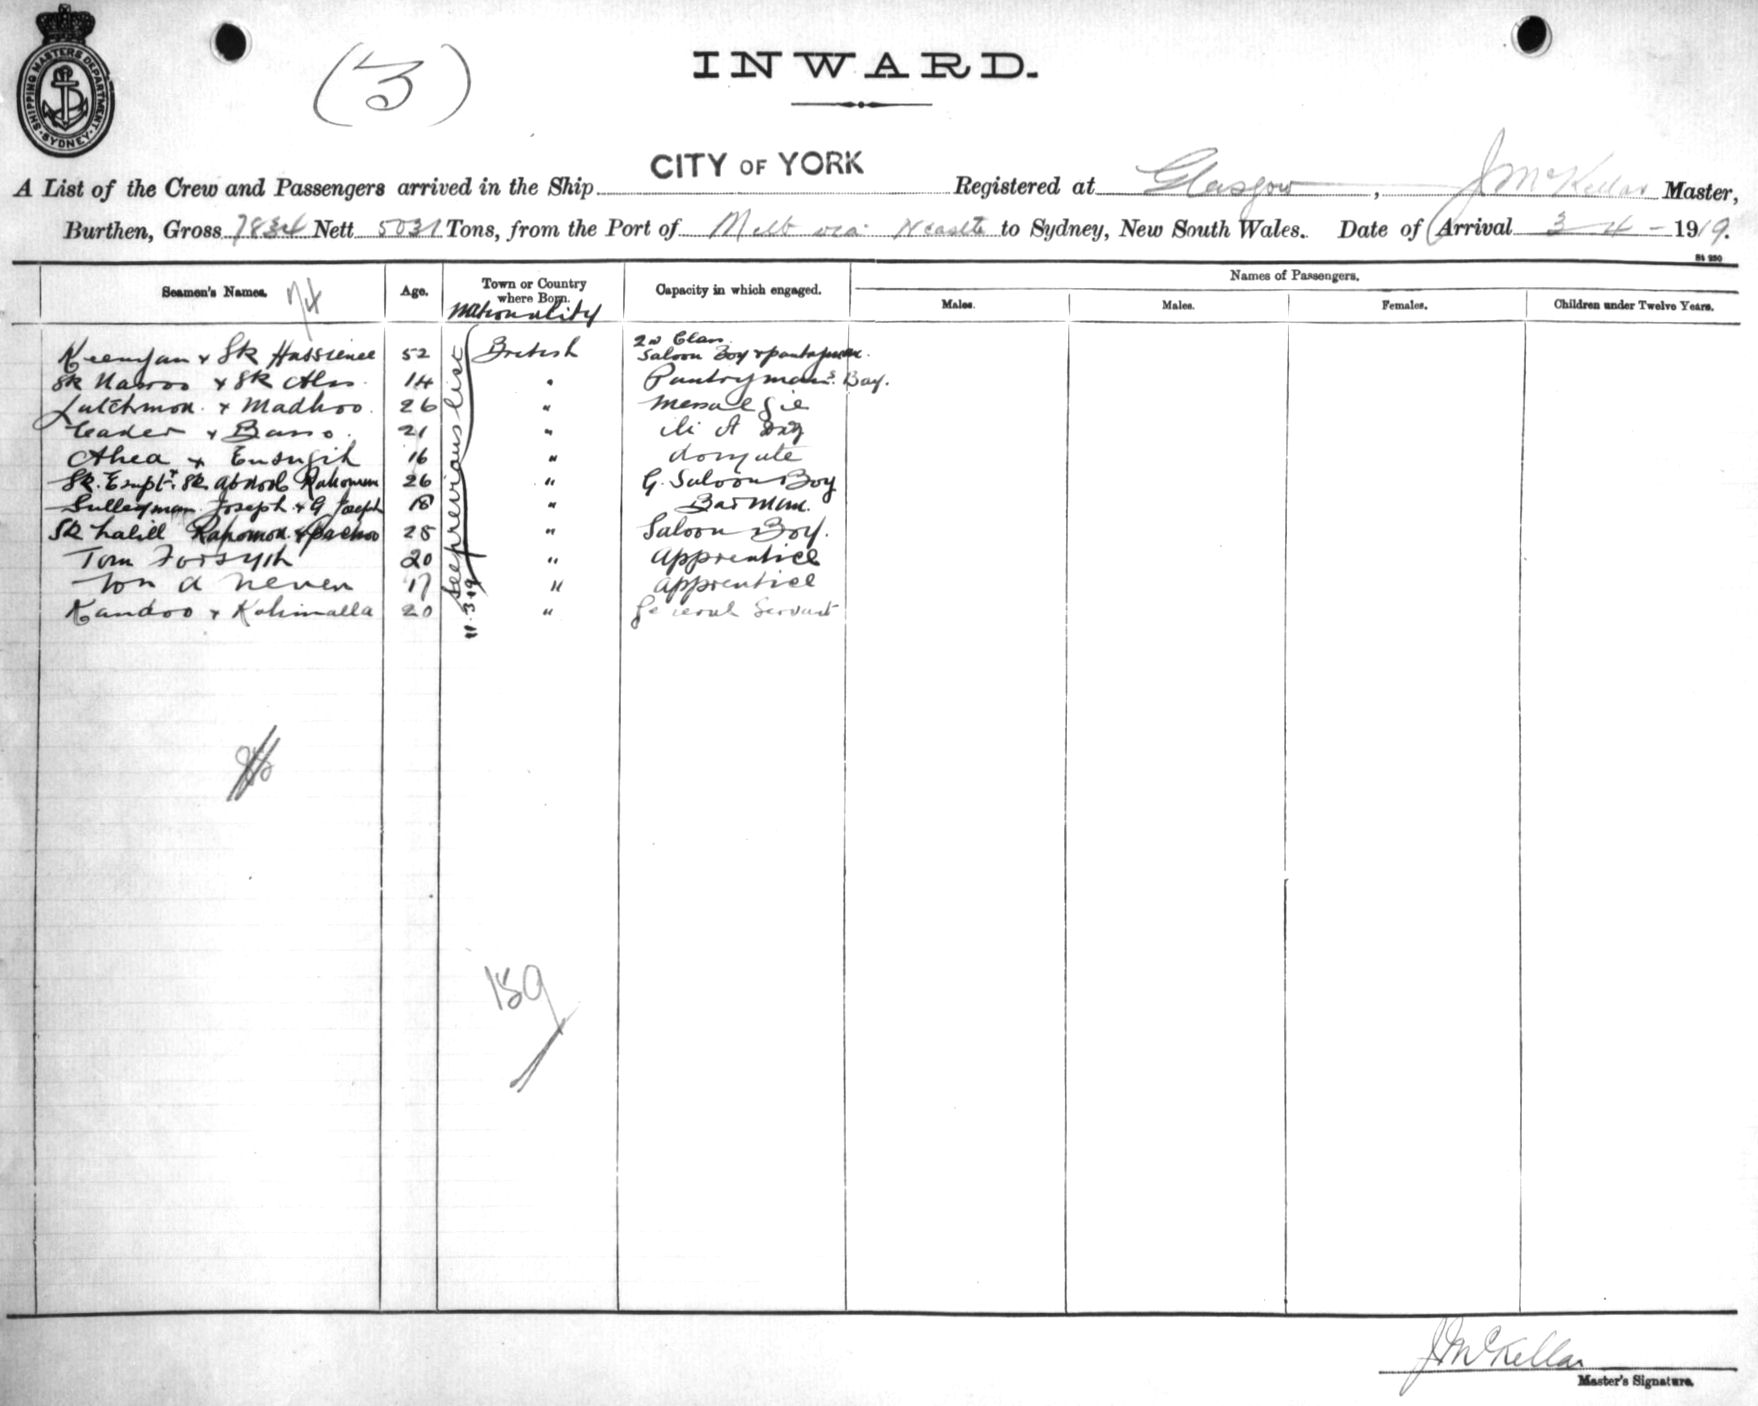 SHIPPING MASTERS DEPARTMENT
SYDNEY
(3)
INWARD.
A List of the Crew and Passengers arrived in the Ship CITY OF YORK Registered at Glasgow, J McKellar Master,
Burthen, Gross 7834 Nett 5031 Tons, from the Port of Melb via Ncastle to Sydney, New South Wales. Date of Arrival 3-4-1919.
St 250
Seamen's Names. Age. Town or Country where Born. Capacity in which engaged. Names of Passengers.
Nationality
Males. Males. Females. Children under Twelve Years.
see previous list
11.3.19
2nd Class
x Sk 52 British Saloon Boy & pantryman.
Sk x Sk 14 " Pantryman's Boy.
Lutchmon x Madhoo. 26 "
x 21 "
x 16 "
Sk. Sk. Abdool Rahoman 26 " G. Saloon Boy
Sulleyman Joseph x G Joseph 18 " Barman.
Sk Lalill Rahomon x 28 " Saloon Boy.
Tom Forsyth 20 " apprentice
17 " apprentice
Kandoo x 20 " General Servant
159
J McKellar
Master's Signature.